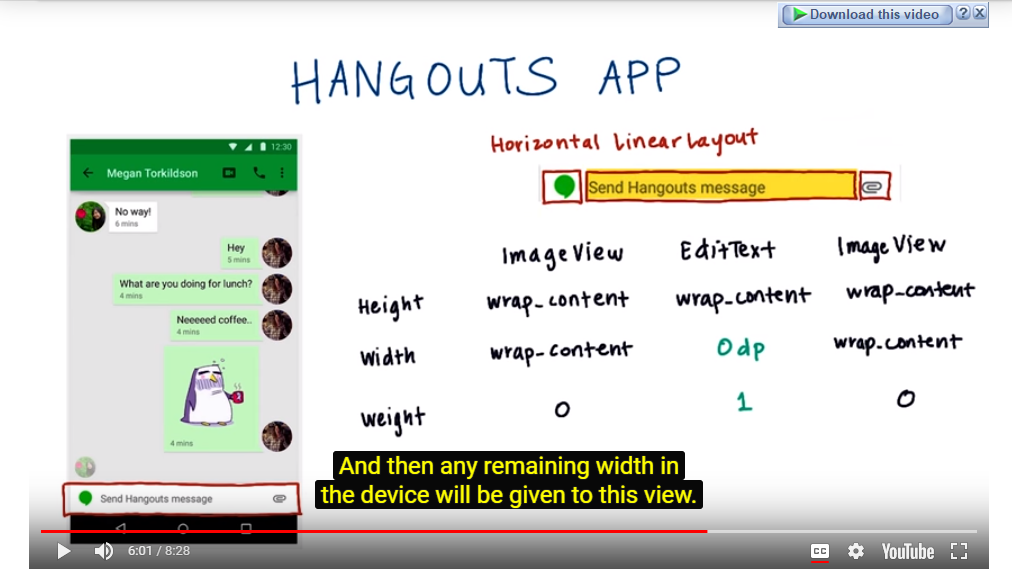 Download this video ? X
HANGOUTS APP
12:30
Megan Torkildson
No way!
6 mins
Hey
5 mins
What are you doing for lunch?
4 mins
Neeeeed coffee..
4 mins
4 mins
Send Hangouts message
Horizontal LinearLayout
Send Hangouts message
ImageView EditText ImageView
Height wrap_content wrap_content wrap_content
Width wrap_content 0dp wrap_content
weight 0 1 0
And then any remaining width in
the device will be given to this view.
6:01 / 8:28
CC YouTube